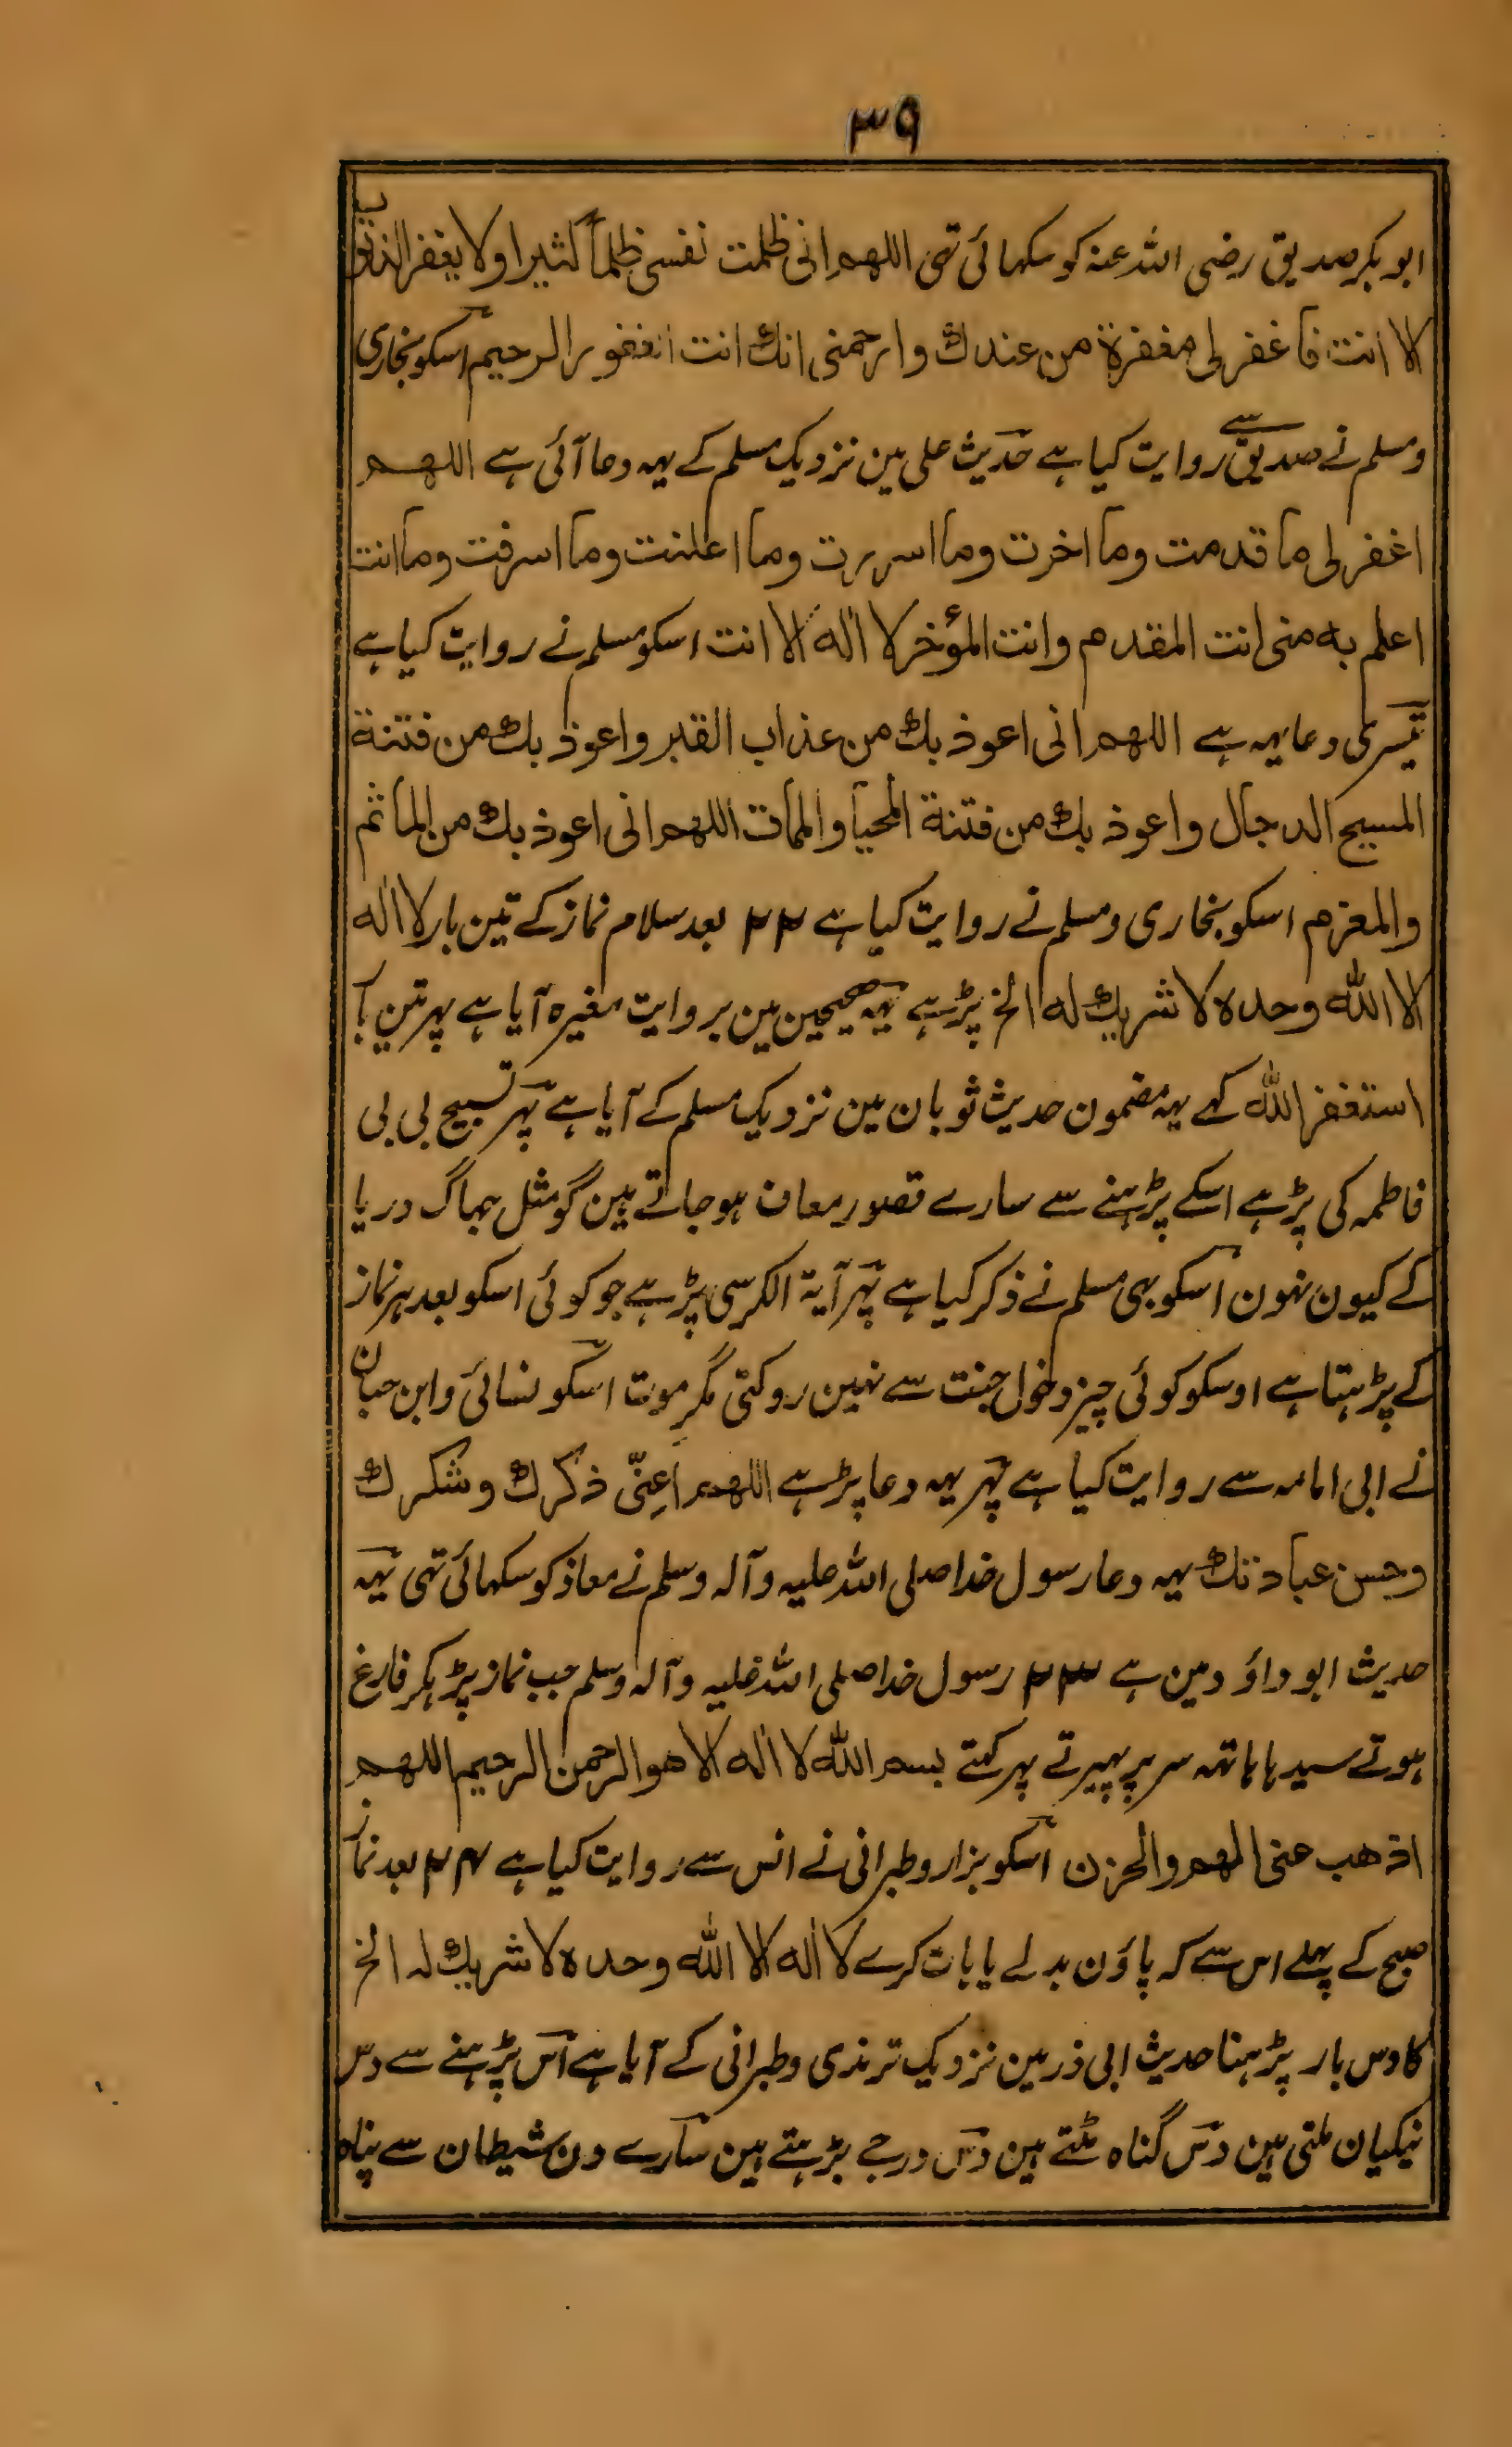 ۳۹
ابو بکر صدیق رضی اللہ عنہ کو سکہائی تہی اللهم انی ظلمت نفسی ظلماً کثیرا ولا یغفر الذنوب
الا انت فاغفر لی مغفرة من عندك وارحمنی انك انت الغفور الرحیم اسکو بخاری
و مسلم نے صدیق سے روایت کیا ہے حدیث علی مین نزدیک مسلم کے یہہ دعا آئی ہے اللهم
اغفر لی ما قدمت وما اخرت وما اسررت وما اعلنت وما اسرفت وما انت
اعلم به منی انت المقدم وانت المؤخر لا اله الا انت اسکو مسلم نے روایت کیا ہے
تیسری دعا یہہ ہے اللهم انی اعوذ بك من عذاب القبر واعوذ بك من فتنة
المسیح الدجال واعوذ بك من فتنة المحیا والممات اللهم انی اعوذ بك من المأثم
والمغرم اسکو بخاری و مسلم نے روایت کیا ہے ۲۲ بعد سلام نماز کے تین بار لا اله
الا الله وحده لا شریك له الخ پڑہے یہہ صحیحین مین بروایت مغیرہ آیا ہے پہر تین بار
استغفر الله کہے یہہ مضمون حدیث ثوبان مین نزدیک مسلم کے آیا ہے پہر تسبیح بی بی
فاطمہ کی پڑہے اسکے پڑہنے سے سارے قصور معاف ہو جاتے ہین گو مثل جہاگ دریا
کے کیون نہون اسکو بہی مسلم نے ذکر کیا ہے پہر آیة الکرسی پڑہے جو کوئی اسکو بعد ہر نماز
کے پڑہتا ہے اوسکو کوئی چیز دخول جنت سے نہین روکتی مگر موت اسکو نسائی و ابن حبان
نے ابی امامہ سے روایت کیا ہے پہر یہہ دعا پڑہے اللهم اَعِنّی ذکرك وشکرك
وحسن عبادتك یہہ دعا رسول خدا صلی اللہ علیہ وآلہ وسلم نے معاذ کو سکہائی تہی یہہ
حدیث ابو داؤد مین ہے ۲۳ رسول خدا صلی اللہ علیہ وآلہ وسلم جب نماز پڑہکر فارغ
ہوتے سیدہا ہاتہہ سر پر پہیرتے پہر کہتے بسم الله لا اله الا هو الرحمن الرحیم اللهم
اذهب عنی الهم والحزن اسکو بزار و طبرانی نے انس سے روایت کیا ہے ۲۴ بعد نماز
صبح کے پہلے اس سے کہ پاؤن بدلے یا بات کرے لا اله الا الله وحده لا شریك له الخ
کا دس بار پڑہنا حدیث ابی ذر مین نزدیک ترمذی و طبرانی کے آیا ہے اس پڑہنے سے دس
نیکیان ملتی ہین دس گناہ مٹتے ہین دس درجے بڑہتے ہین سارے دن شیطان سے پناہ